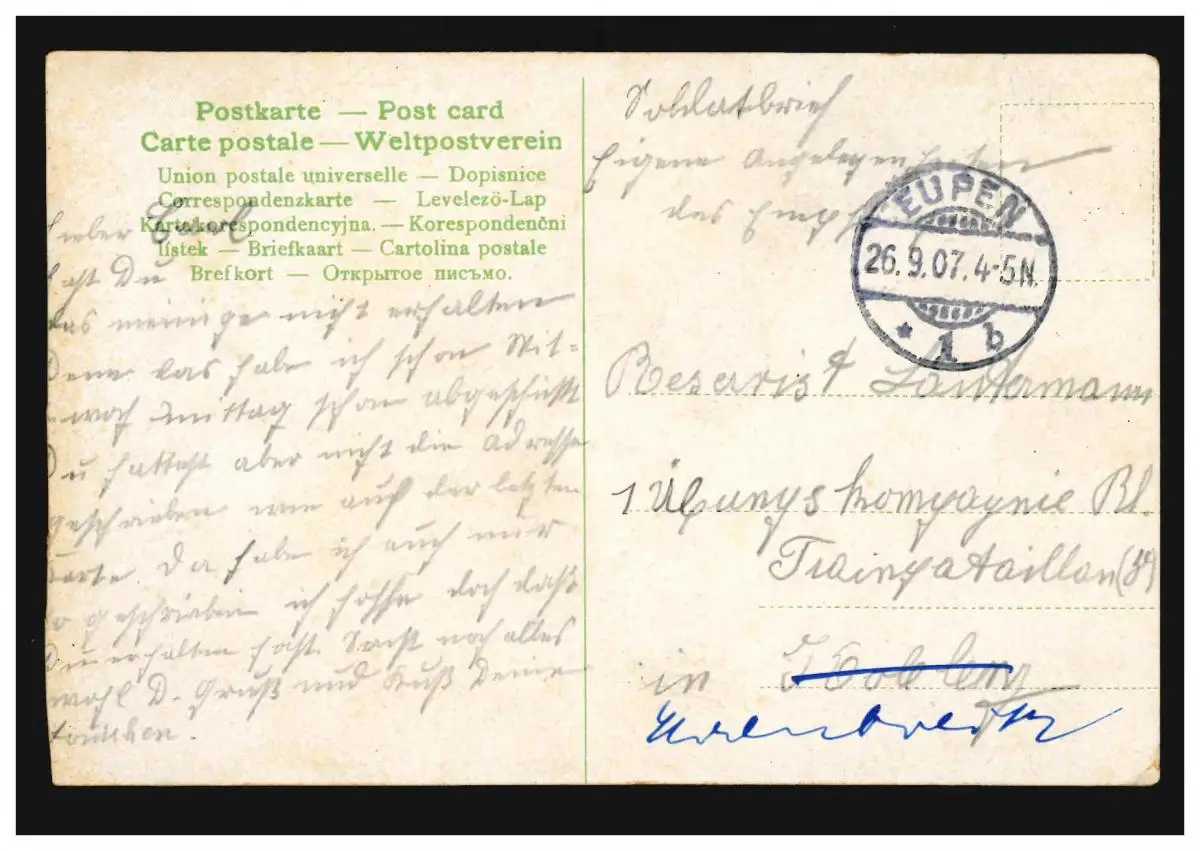 Postkarte — Post card
Carte postale — Weltpostverein
Union postale universelle — Dopisnice
Correspondenzkarte — Levelező-Lap
Karta korespondencyjna. — Korespondenční
lístek — Briefkaart — Cartolina postale
Brefkort — Открытое письмо.
Lieber Carl
Hast Du
das meinige nicht erhalten
Denn das habe ich schon Mit-
woch mittag schon abgeschickt
Du hattest aber nicht die Adresse
geschrieben wie auf der letzten
Karte. Da habe ich auch nur
so geschrieben ich hoffe doch daß
Du erhalten hast. Sonst noch alles
wohl D. Gruß und Kuß Deine
Soldatbrief
Eigene Angelegenheiten
des Empf
EUPEN
26.9.07.4-5N.
* 1 b
Reservist Lautermann
1 Übungskompagnie Rh.
Trainbataillon (8)
in Koblenz
Ehrenbreitst